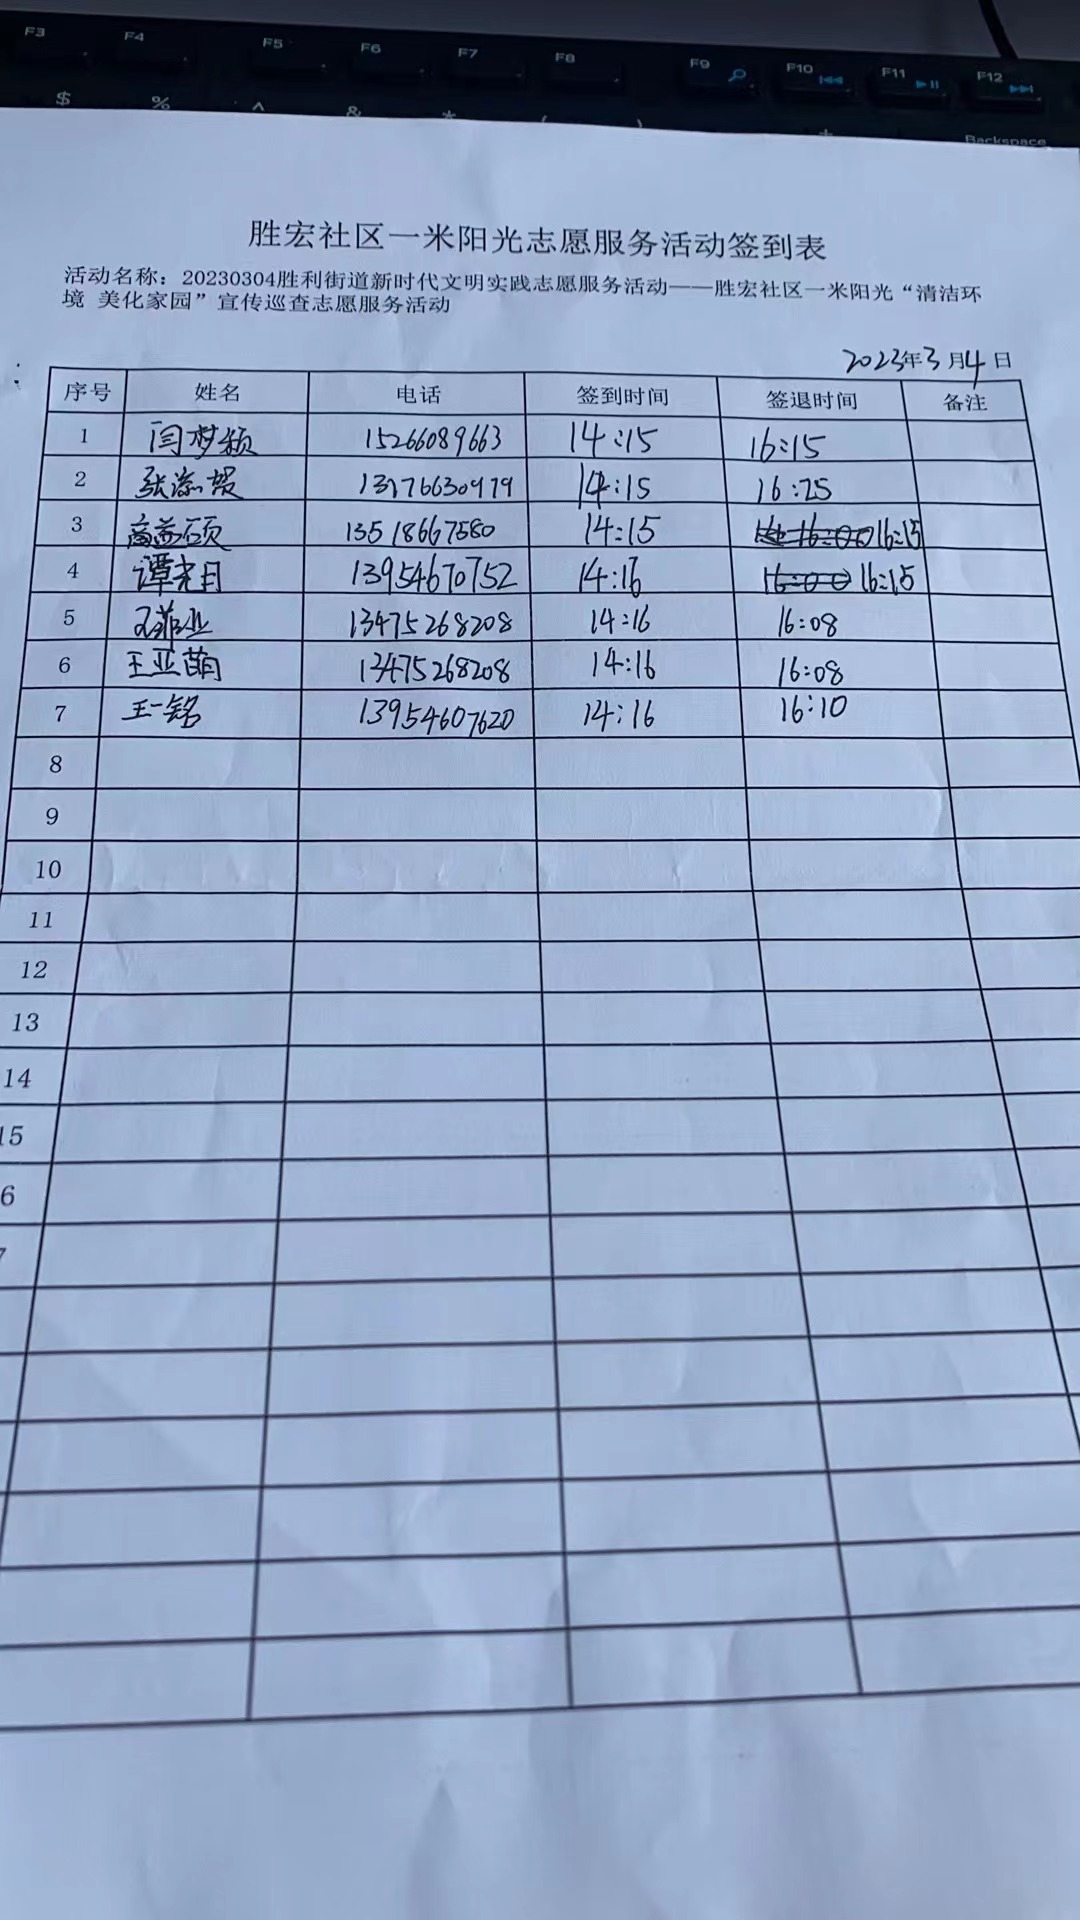 F3 F4 F5 F6 F7 F8 F9 F10 F11 F12
$ % ^ & * ( ) +
Backspace
胜宏社区一米阳光志愿服务活动签到表
活动名称：20230304胜利街道新时代文明实践志愿服务活动——胜宏社区一米阳光“清洁环
境 美化家园”宣传巡查志愿服务活动
2023年3月4日
序号 姓名 电话 签到时间 签退时间 备注
1 闫梦颖 15266089663 14:15 16:15
2 张 贺 14:15 16:25
3 高益硕 13518667580 14:15 16:00 16:15
4 谭 13954670752 14:16 16:00 16:15
5 王菲业 13475268208 14:16 16:08
6 王亚萌 13475268208 14:16 16:08
7 王一铭 13954607620 14:16 16:10
8
9
10
11
12
13
14
15
6
7